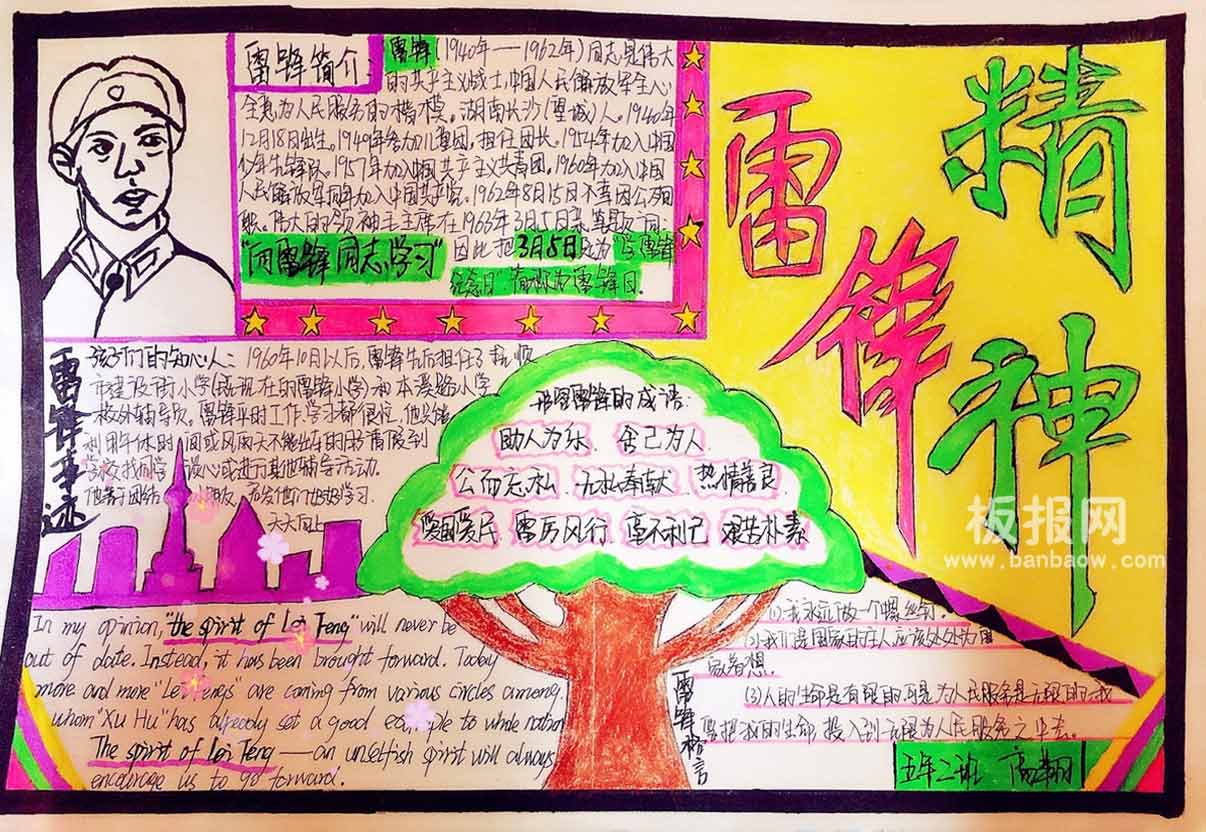 雷锋简介
雷锋(1940年——1962年)同志是伟大
的共产主义战士,中国人民解放军全心
全意为人民服务的楷模。湖南长沙(望城)人。1940年
12月18日出生。1949年参加儿童团,担任团长。1954年加入中国
少年先锋队。1957年加入中国共产主义共青团。1960年加入中国
人民解放军同年加入中国共产党。1962年8月15日不幸因公殉
职。伟大的领袖毛主席在1963年3月5日亲笔题词:
"向雷锋同志学习"
因此把3月5日定为"学雷锋
纪念日"
为雷锋日.
雷锋精神
雷锋事迹
孩子们的知心人:1960年10月以后,雷锋先后担任了抚顺
市建设街小学(既现在的雷锋小学)和本溪路小学
校外辅导员。雷锋平时工作、学习都很忙,他
利用午休时间或风雨天不能出车的日子请假到
学校找同学谈心或进行其他辅导活动.
他善于团结小朋友,
他们好好学习.
天天向上
形容雷锋的成语:
助人为乐. 舍己为人
公而忘私. 无私奉献. 热情善良.
爱国爱民 雷厉风行 毫不利己 艰苦朴素
In my opinion, "the spirit of Lei Feng" will never be
out of date. Instead, it has been brought forward. Today
more and more "Lei Fengs" are coming from various circles among
whom "Xu Hu" has already set a good example to whole nation
The spirit of Lei Feng — an unselfish spirit will always
encourage us to go forward.
雷锋格言
(1)我永远做一个螺丝钉.
(2)我们是国家的主人应该处处为国
家着想.
(3)人的生命是有限的可是为人民服务是无限的,我
要把我的生命投入到无限为人民服务之中去。
五年二班
板报网
www.banbaow.com